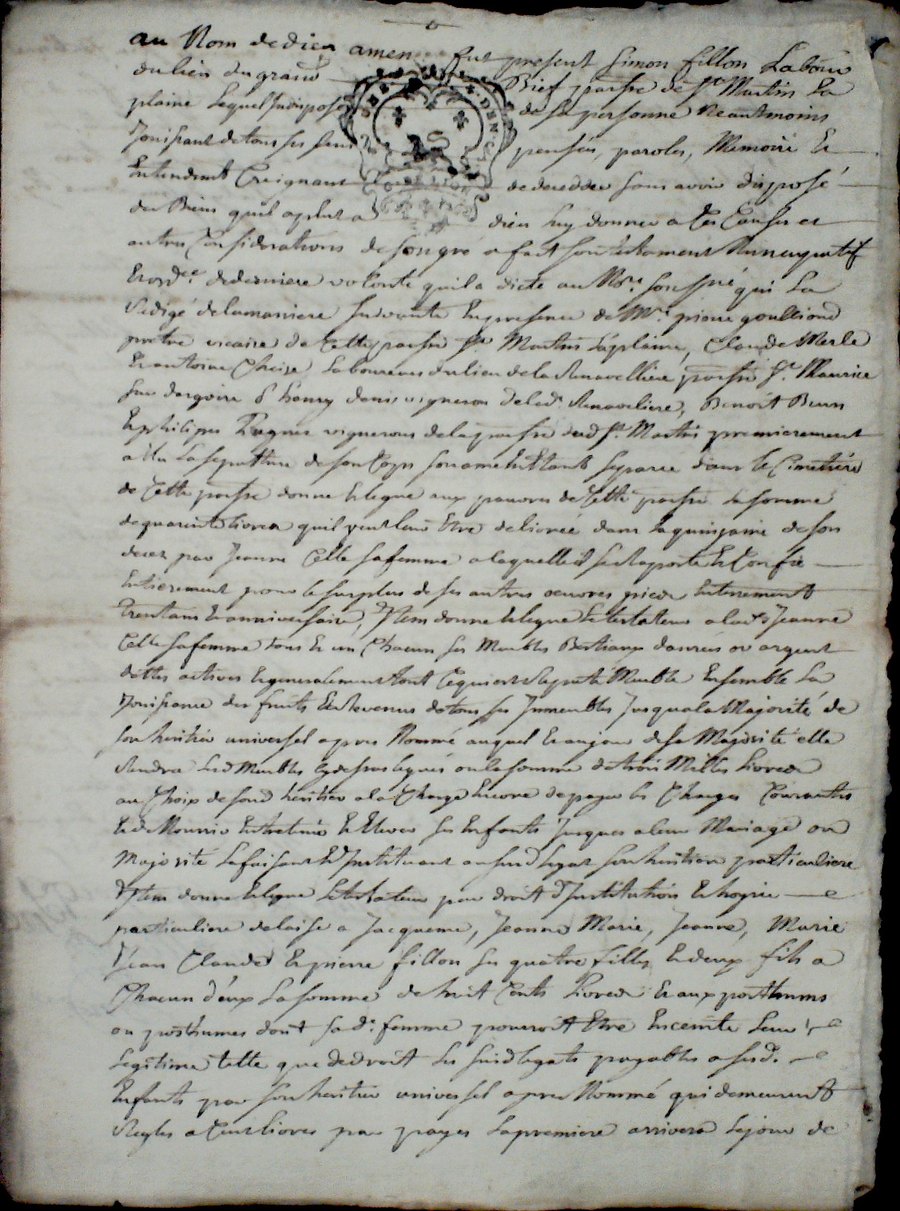 au Nom de dieu amen fut present Simon fillon Labour
du lieu du grand Bief parsse de St Martin La
plaine Lequel indisposé de sa personne Neantmoins
Jouissant de tous ses sens pensées, paroles, Memoire Et
Entendement Creignant de deceder sans avoir disposé
des Biens quil a plut a dieu luy donner a Ces Causes et
autres Considerations de son gré a fait son testament Nuncupatif
Et ordce de derniere volonté quil a dicté au Nore soussné qui La
Redigé de la maniere suivante En presence de Mre pierre goultiond
pretre vicaire de Cette parsse St Martin Laplaine, Claude Merle
Et antoine Laboureurs du lieu de la Ranavelliere parsse St Maurice
sur dargoire vigneron de lad. Ranaveliere, Benoit Brun
Et philippe vignerons de la parsse dud St Martin premierement
a Elu La sepulture de son Corps son ame Etant separée dans le Cimetiere
de Cette parsse donne Et legue aux pauvres de Cette parsse la somme
de quarente Livres quil veut leur Etre delivrée dans la quinzaine de son
decez par Jeanne Celle sa femme a laquelle il se Raporte Et Confie
Entierement pour le surplus de ses autres oeuvres pies Enterrement
trentain Et anniversaire, Item donne Et legue Le testateur a lad. Jeanne
Celle sa femme tous Et un Chacun ses Meubles Bestiaux danrées or argent
dettes actives Et generalement tout Ce qui est Reputé Meuble Ensemble La
Jouissance des fruits Et Revenus de tous ses Immeubles Jusqua la Majorité de
son heritier universel apres Nommé auquel Et au jour de sa Majorité elle
Rendra Lesd Meubles cy dessus legués ou la somme de trois Milles Livres
au Choix de sond heritier a la Charge Encore de payer les Charges Courantes
Et de Nourrir Entretenir Et Elever ses Enfants Jusques a leur Mariage ou
Majorité La faisant Et Instituant au susd legat son heritiere particuliere
Item donne Et legue Le testateur par droit dInstitution Et hoirie
particuliere delaisse a Jacqueme, Jeanne Marie, Jeanne, Marie
Jean Claude Et pierre fillon ses quatre filles Et deux fils a
Chacun d'eux La somme de huit Cents Livres Et aux posthumes
ou posthumes dont sa de femme pouroit Etre Enceinte Leur
Legitime telle que de droit Les susd legats payables a sesd.
Enfants par son heritier universel apres Nommé qui demeurent
Reglés a Cent livres par payes La premiere arrivera le jour de